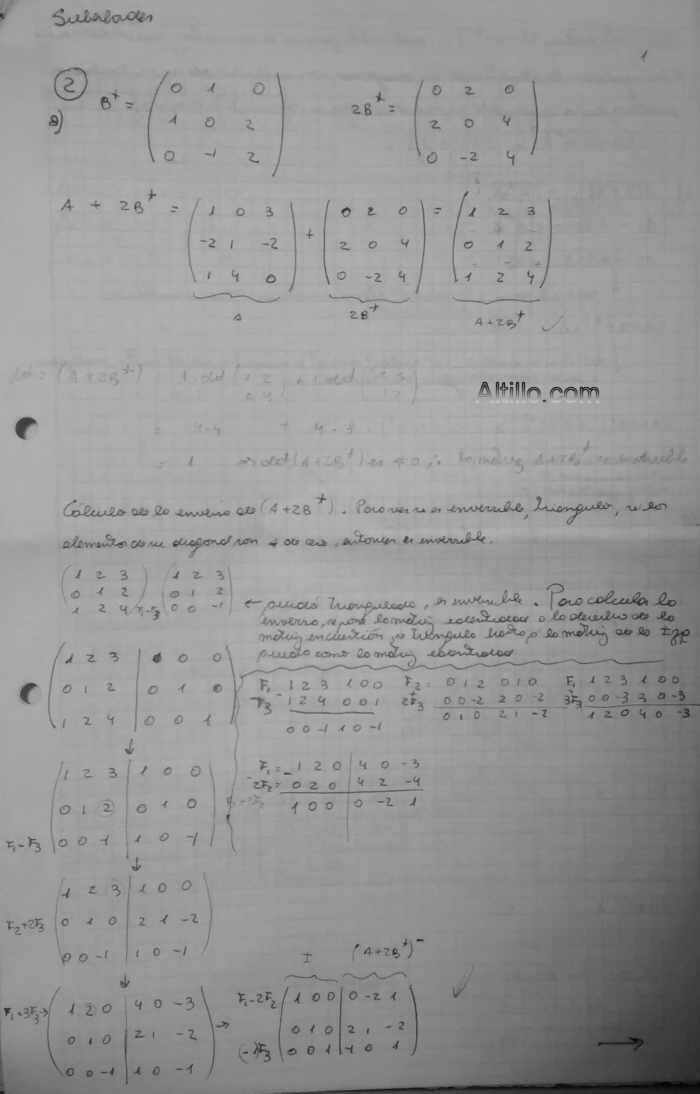 2
1
a)
B^t = ( 0 1 0 / 1 0 2 / 0 -1 2 ) 2B^t = ( 0 2 0 / 2 0 4 / 0 -2 4 )
A + 2B^t = ( 1 0 3 / -2 1 -2 / 1 4 0 ) + ( 0 2 0 / 2 0 4 / 0 -2 4 ) = ( 1 2 3 / 0 1 2 / 1 2 4 )
A 2B^t A+2B^t
Altillo.com
= 1
Cálculo de la inversa de (A+2B^t). Para ver si es inversible, triangulo, si los
elementos de su diagonal son ≠ de cero, entonces es inversible.
( 1 2 3 / 0 1 2 / 1 2 4 ) F1-F3 ( 1 2 3 / 0 1 2 / 0 0 -1 )
← quedó triangulada, es inversible. Para calcular la
inversa, pongo la matriz identidad a la derecha de la
matriz en cuestión, y triangulo hasta q la matriz de la izq
quede como la matriz identidad
( 1 2 3 | 0 0 / 0 1 2 | 0 1 0 / 1 2 4 | 0 0 1 )
F1 1 2 3 1 0 0
-F3 1 2 4 0 0 1
0 0 -1 1 0 -1
F2 = 0 1 2 0 1 0
2F3 0 0 -2 2 0 -2
0 1 0 2 1 -2
F1 1 2 3 1 0 0
3F3 0 0 -3 3 0 -3
1 2 0 4 0 -3
F1-F3 ( 1 2 3 | 1 0 0 / 0 1 2 | 0 1 0 / 0 0 -1 | 1 0 -1 )
F1 = 1 2 0 | 4 0 -3
-2F2 = 0 2 0 | 4 2 -4
1 0 0 | 0 -2 1
F2+2F3 ( 1 2 3 | 1 0 0 / 0 1 0 | 2 1 -2 / 0 0 -1 | 1 0 -1 )
F1+3F3→ ( 1 2 0 | 4 0 -3 / 0 1 0 | 2 1 -2 / 0 0 -1 | 1 0 -1 ) →
I (A+2B^t)^-
F1-2F2 ( 1 0 0 | 0 -2 1 / 0 1 0 | 2 1 -2 / 0 0 1 | -1 0 1 )
(-1)F3